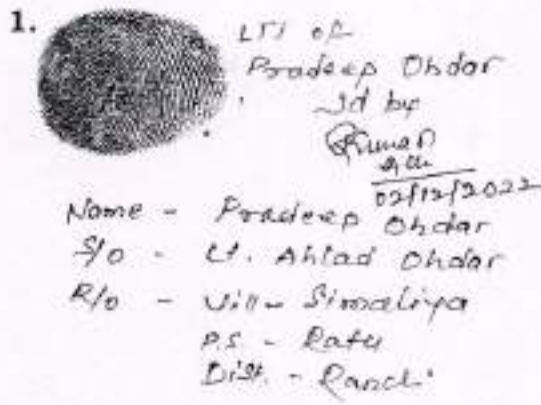 1.
LTI of
Pradeep Ohdar
Id by
Kumar
02/12/2022
Name - Pradeep Ohdar
S/o - Lt. Ahlad Ohdar
R/o - Vill - Simaliya
P.S - Ratu
Dist. - Ranchi